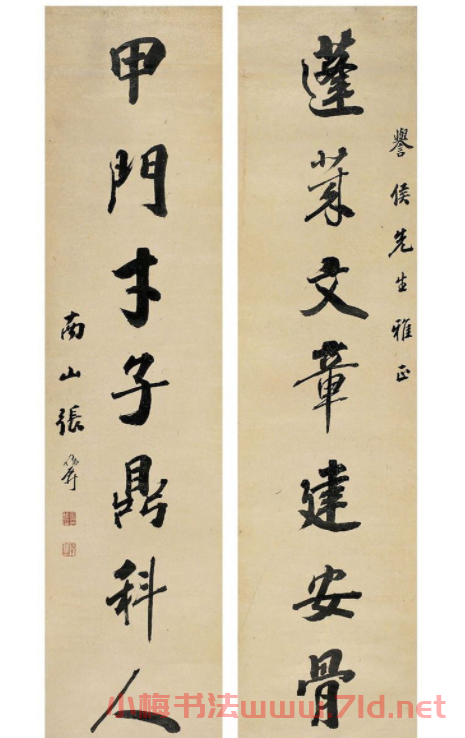 譽侯先生雅正
蓬萊文章建安骨
甲門才子鼎科人
南山張維屏
小梅书法www.7ld.net